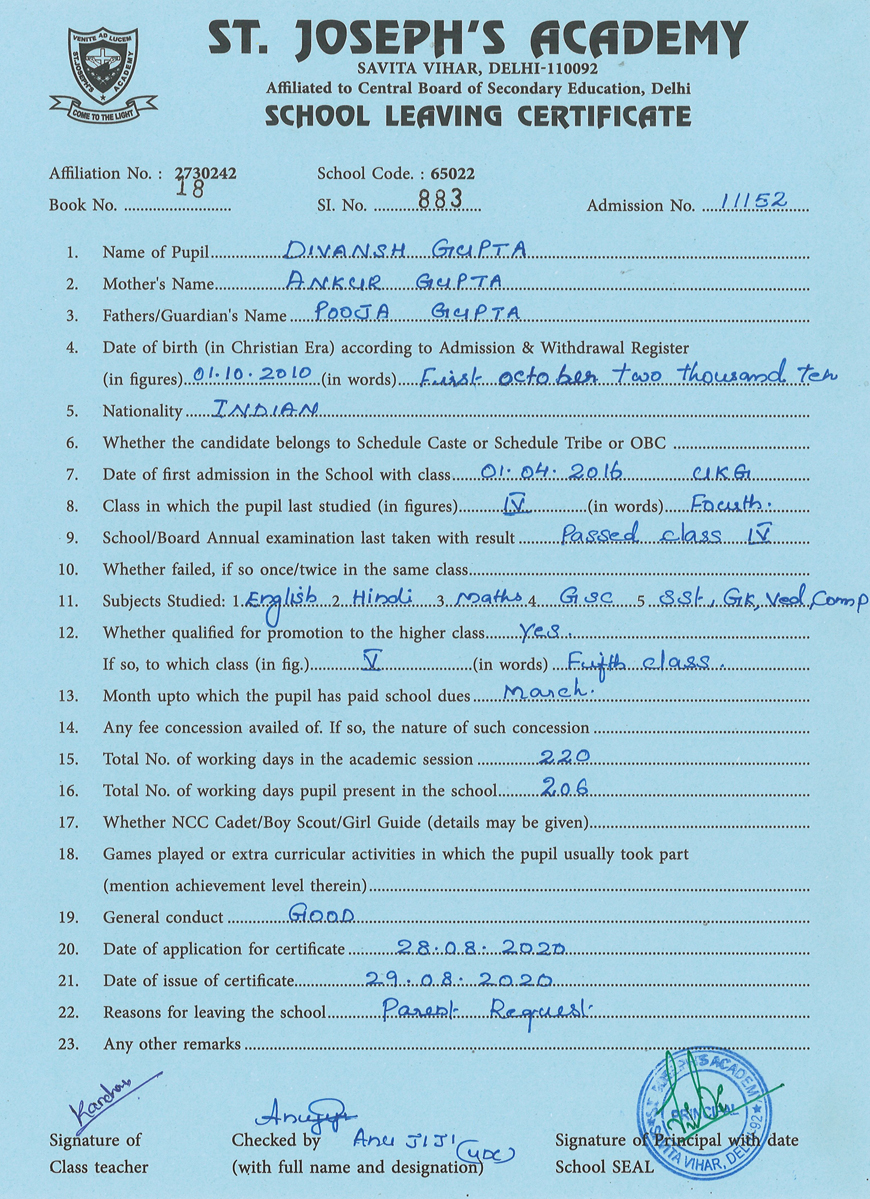 VENITE AD LUCEM
ST. JOSEPH'S ACADEMY
COME TO THE LIGHT
ST. JOSEPH'S ACADEMY
SAVITA VIHAR, DELHI-110092
Affiliated to Central Board of Secondary Education, Delhi
SCHOOL LEAVING CERTIFICATE
Affiliation No. : 2730242 School Code. : 65022
Book No. 18 SI. No. 883 Admission No. 11152
1. Name of Pupil DIVANSH GUPTA
2. Mother's Name ANKUR GUPTA
3. Fathers/Guardian's Name POOJA GUPTA
4. Date of birth (in Christian Era) according to Admission & Withdrawal Register
(in figures) 01.10.2010 (in words) First october two thousand Ten
5. Nationality INDIAN
6. Whether the candidate belongs to Schedule Caste or Schedule Tribe or OBC
7. Date of first admission in the School with class 01.04.2016 UKG
8. Class in which the pupil last studied (in figures) IV (in words) Fourth.
9. School/Board Annual examination last taken with result Passed class IV
10. Whether failed, if so once/twice in the same class
11. Subjects Studied: 1. English 2. Hindi 3. Maths 4. GSC 5 SSt, GK, Ved, Comp
12. Whether qualified for promotion to the higher class yes.
If so, to which class (in fig.) V (in words) Fifth class.
13. Month upto which the pupil has paid school dues March.
14. Any fee concession availed of. If so, the nature of such concession
15. Total No. of working days in the academic session 220
16. Total No. of working days pupil present in the school 206
17. Whether NCC Cadet/Boy Scout/Girl Guide (details may be given)
18. Games played or extra curricular activities in which the pupil usually took part
(mention achievement level therein)
19. General conduct GOOD
20. Date of application for certificate 28.08.2020
21. Date of issue of certificate 29.08.2020
22. Reasons for leaving the school Parent Request
23. Any other remarks
ST. JOSEPH'S ACADEMY
PRINCIPAL
SAVITA VIHAR, DELHI-92
Signature of Checked by Anu JIJI (UDC) Signature of Principal with date
Class teacher (with full name and designation) School SEAL